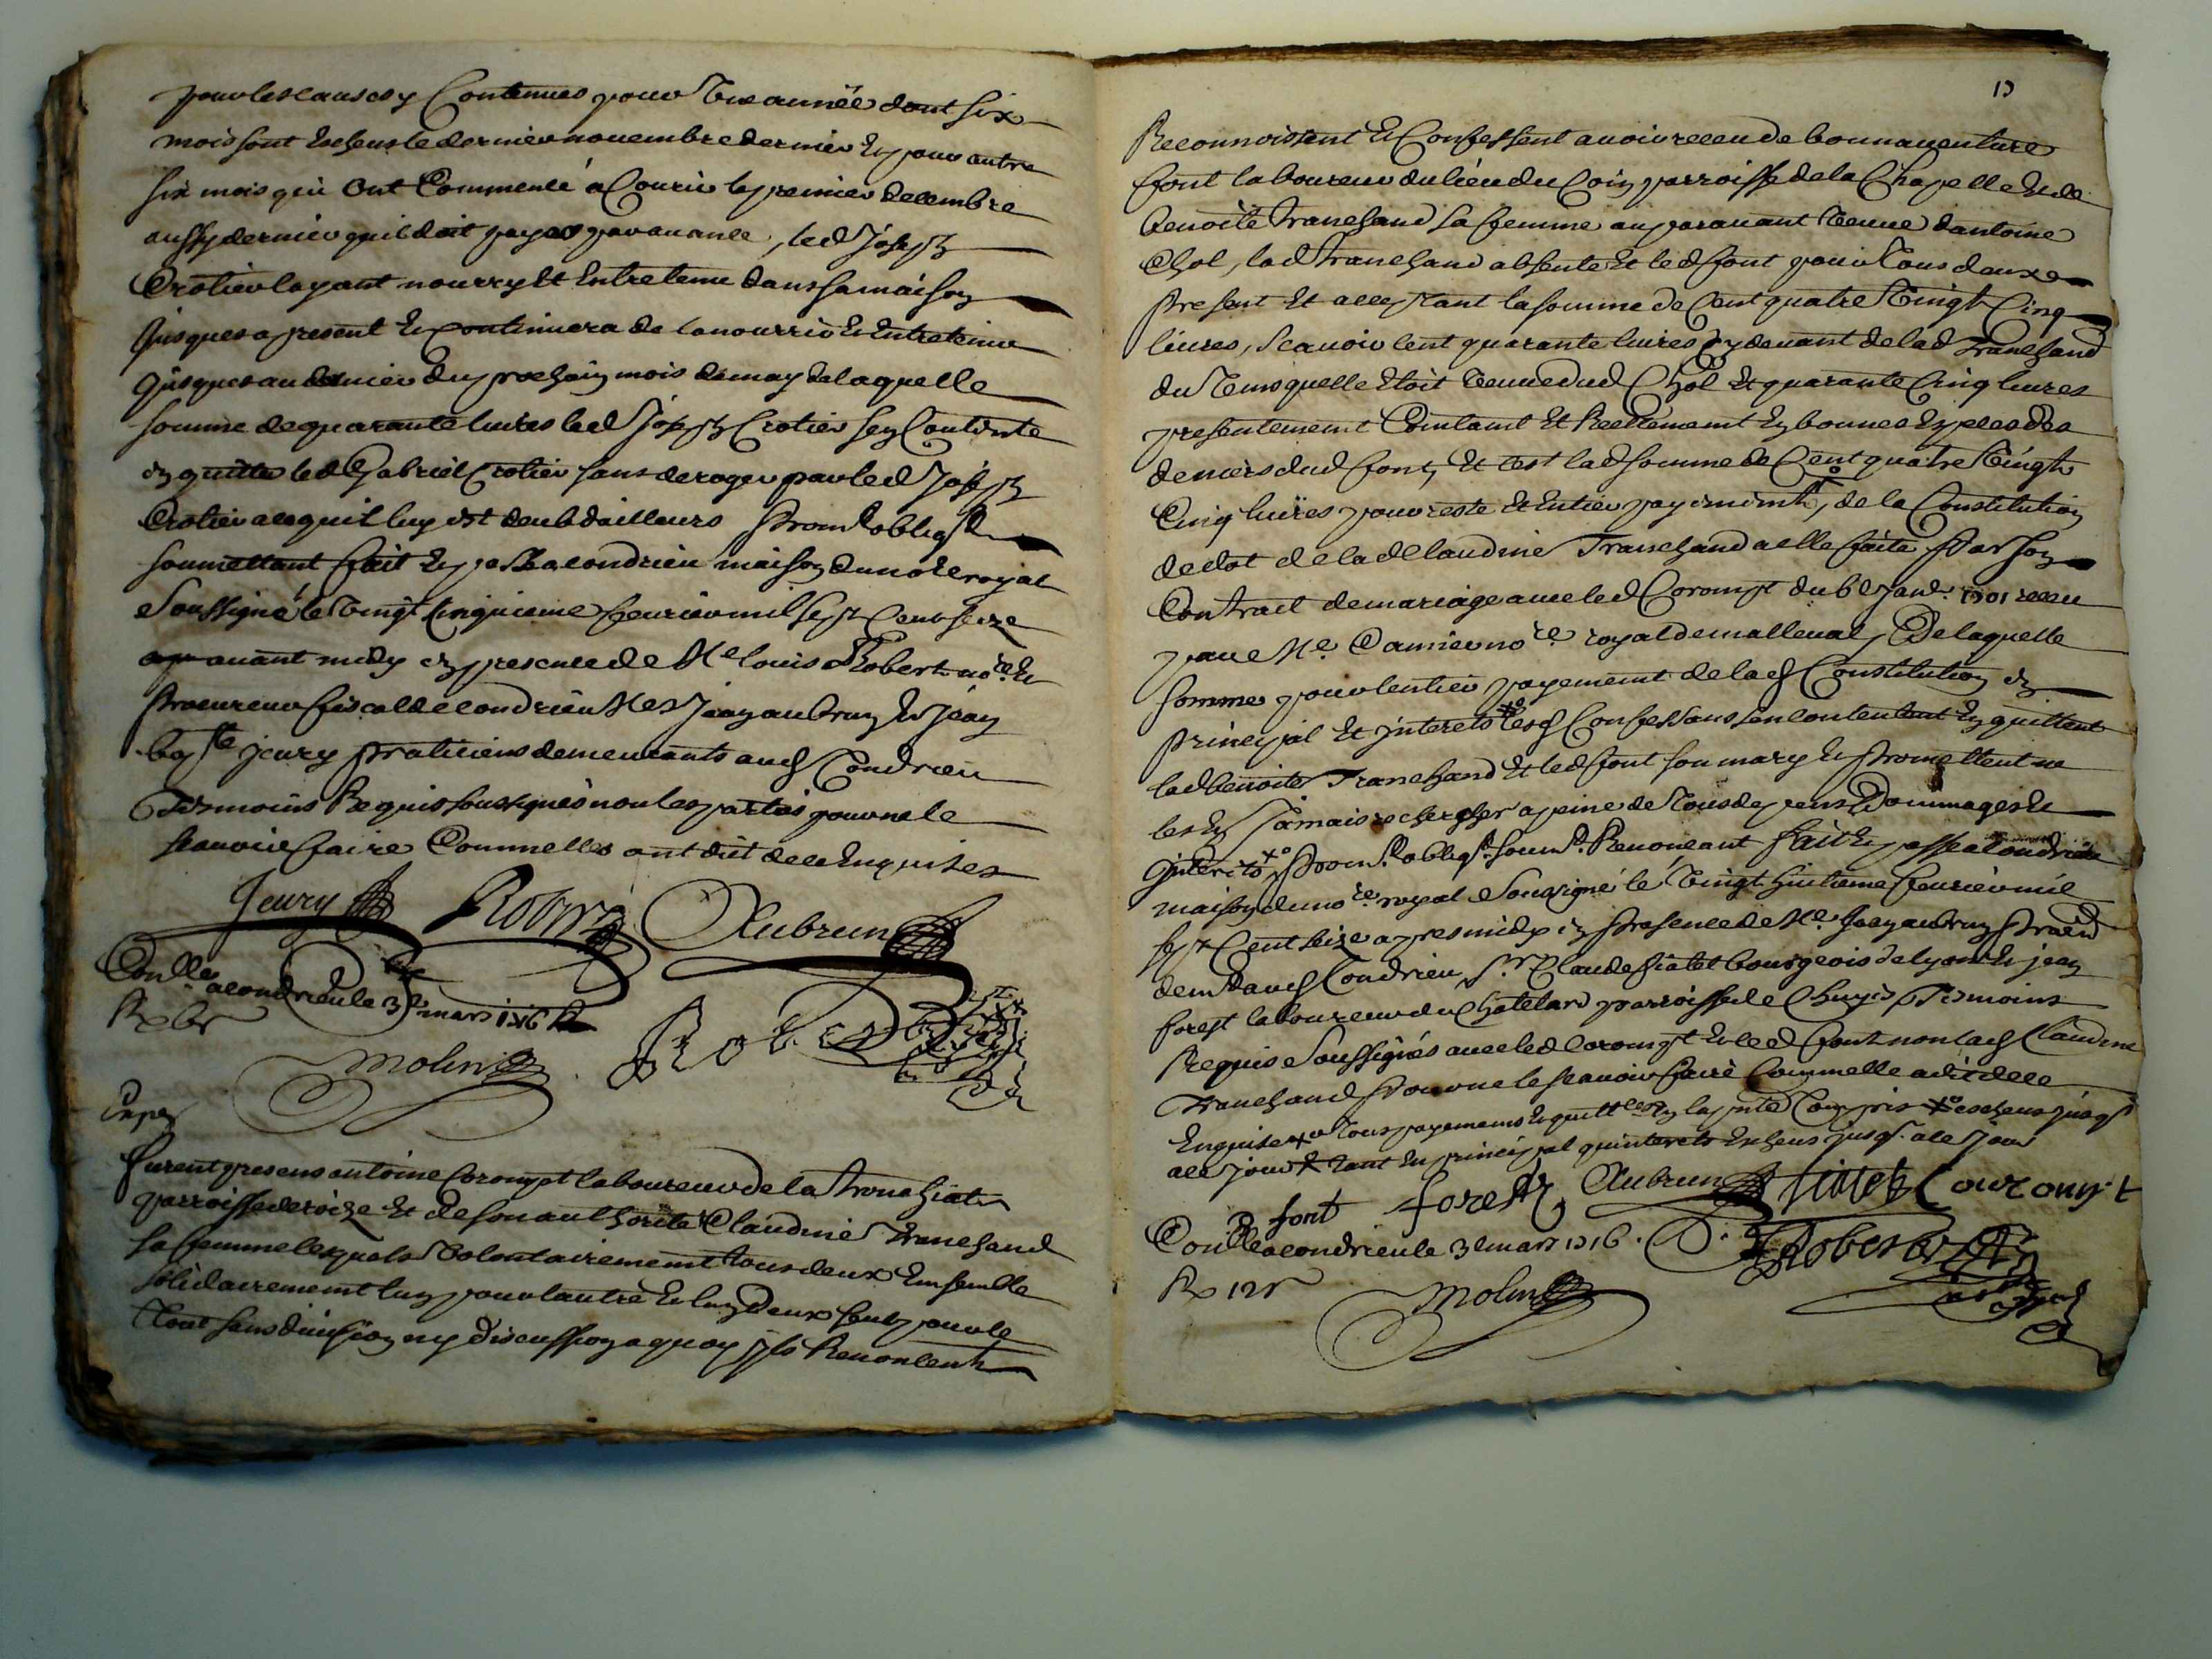 pour les causes y Contenues pour Une année dont six
mois sont Escheus le dernier nouembre dernier Et pour autre
six mois qui Ont Commencé a Courir le premier decembre
aussy dernier quil doit payer par auance, led Joseph
Crotier layant nourry Et Entretenu dans sa maison
Jusques a present Et Continuera de la nourrir Et Entretenir
Jusques au dernier du prochain mois de may de laquelle
somme de quarante liures led Joseph Crotier sen Contente
en quitte led Gabriel Crotier sans deroger par led Joseph
Crotier a ce quil luy est deub dailleurs prom.t oblig.t
soumettant fait Et passé a condrieu maison du no.re royal
Soussigné le Vingt Cinquieme feurier mil sept Cent seize
auant midy en presence de Me louis Robert no.re Et
procureur fiscal de condrieu Mes Jean aubrun Et Jean
bap.te jeury praticiens demeurants aud Condrieu
Tesmoins Requis sousignés non les parties pour ne le
scauoir faire Comme elles ont dit de ce Enquises
Jeury Robert Aubrun
Con.lle a condrieu le 3e mars 1716
Rx 6s
Molin Robert
Exped
furent presens antoine Corompt laboureur de la Tronchiat
parroisse de roize Et de son authorité Claudine Tranchand
sa femme lesquels Volontairement tous deux Ensemble
solidairement lun pour lautre Et lun deux seul pour le
Tout sans diuision ny discussion a quoy ils Renoncent
13
Reconnoissent Et Confessent auoir receu de bonnauenture
font laboureur du lieu du Coin parroisse de la Chapelle Et de
benoite Tranchand sa femme auparauant Veuue dantoine
Chol, lad Tranchand absente Et led font pour Tous deux
present Et acceptant la somme de Cent quatre Vingt Cinq
liures, Scauoir Cent quarante liures cy deuant de lad Tranchand
du Tems quelle Etoit Veuue dud Chol Et quarante Cinq liures
presentement Comtant Et Reellement En bonnes Especes des
deniers dud font, Et C'est lad somme de Cent quatre Vingt
Cinq liures pour reste Et Entier payement, de la Constitution
de dot de lad Claudine Tranchand a elle faite Par son
Contract de mariage auec led Corompt du 6e Janr. 1701 receu
par Me. Damier no.re royal de malleual, De laquelle
somme pour lentier payement de lad Constitution en
principal Et interets lesd Confessans sen contentent En quittent
lad benoite Tranchand Et led font son mary Et promettent ne
les En Jamais rechercher a peine de Tous depens Dommages Et
interets, prom.t oblig.t soum.t Renonceant fait Et passé a Condrieu
maison du no.re royal Sousigné le Vingt huitieme feurier mil
sept Cent seize apres midy en presence de Me. Jean aubrun praticien
dem.t aud Condrieu, s.r Claude fiatet bourgeois de lyon Et jean
forest laboureur du Chatelard parroisse de Chuyes Tesmoins
Requis Soussignés auec led Corompt Et led font non lad Claudine
Tranchand pour ne le scauoir faire Comme elle a dit de ce
Enquise tous payemens Et quitt.ces En la p.nte Compris escheus jusq.s
a ce jour tant En principal quinterets Escheus jusq.s a ce jour
B font forest Aubrun fiatet Couronpt
Con.lle a condrieu le 3e mars 1716. Robert
Rx 12s
Molin